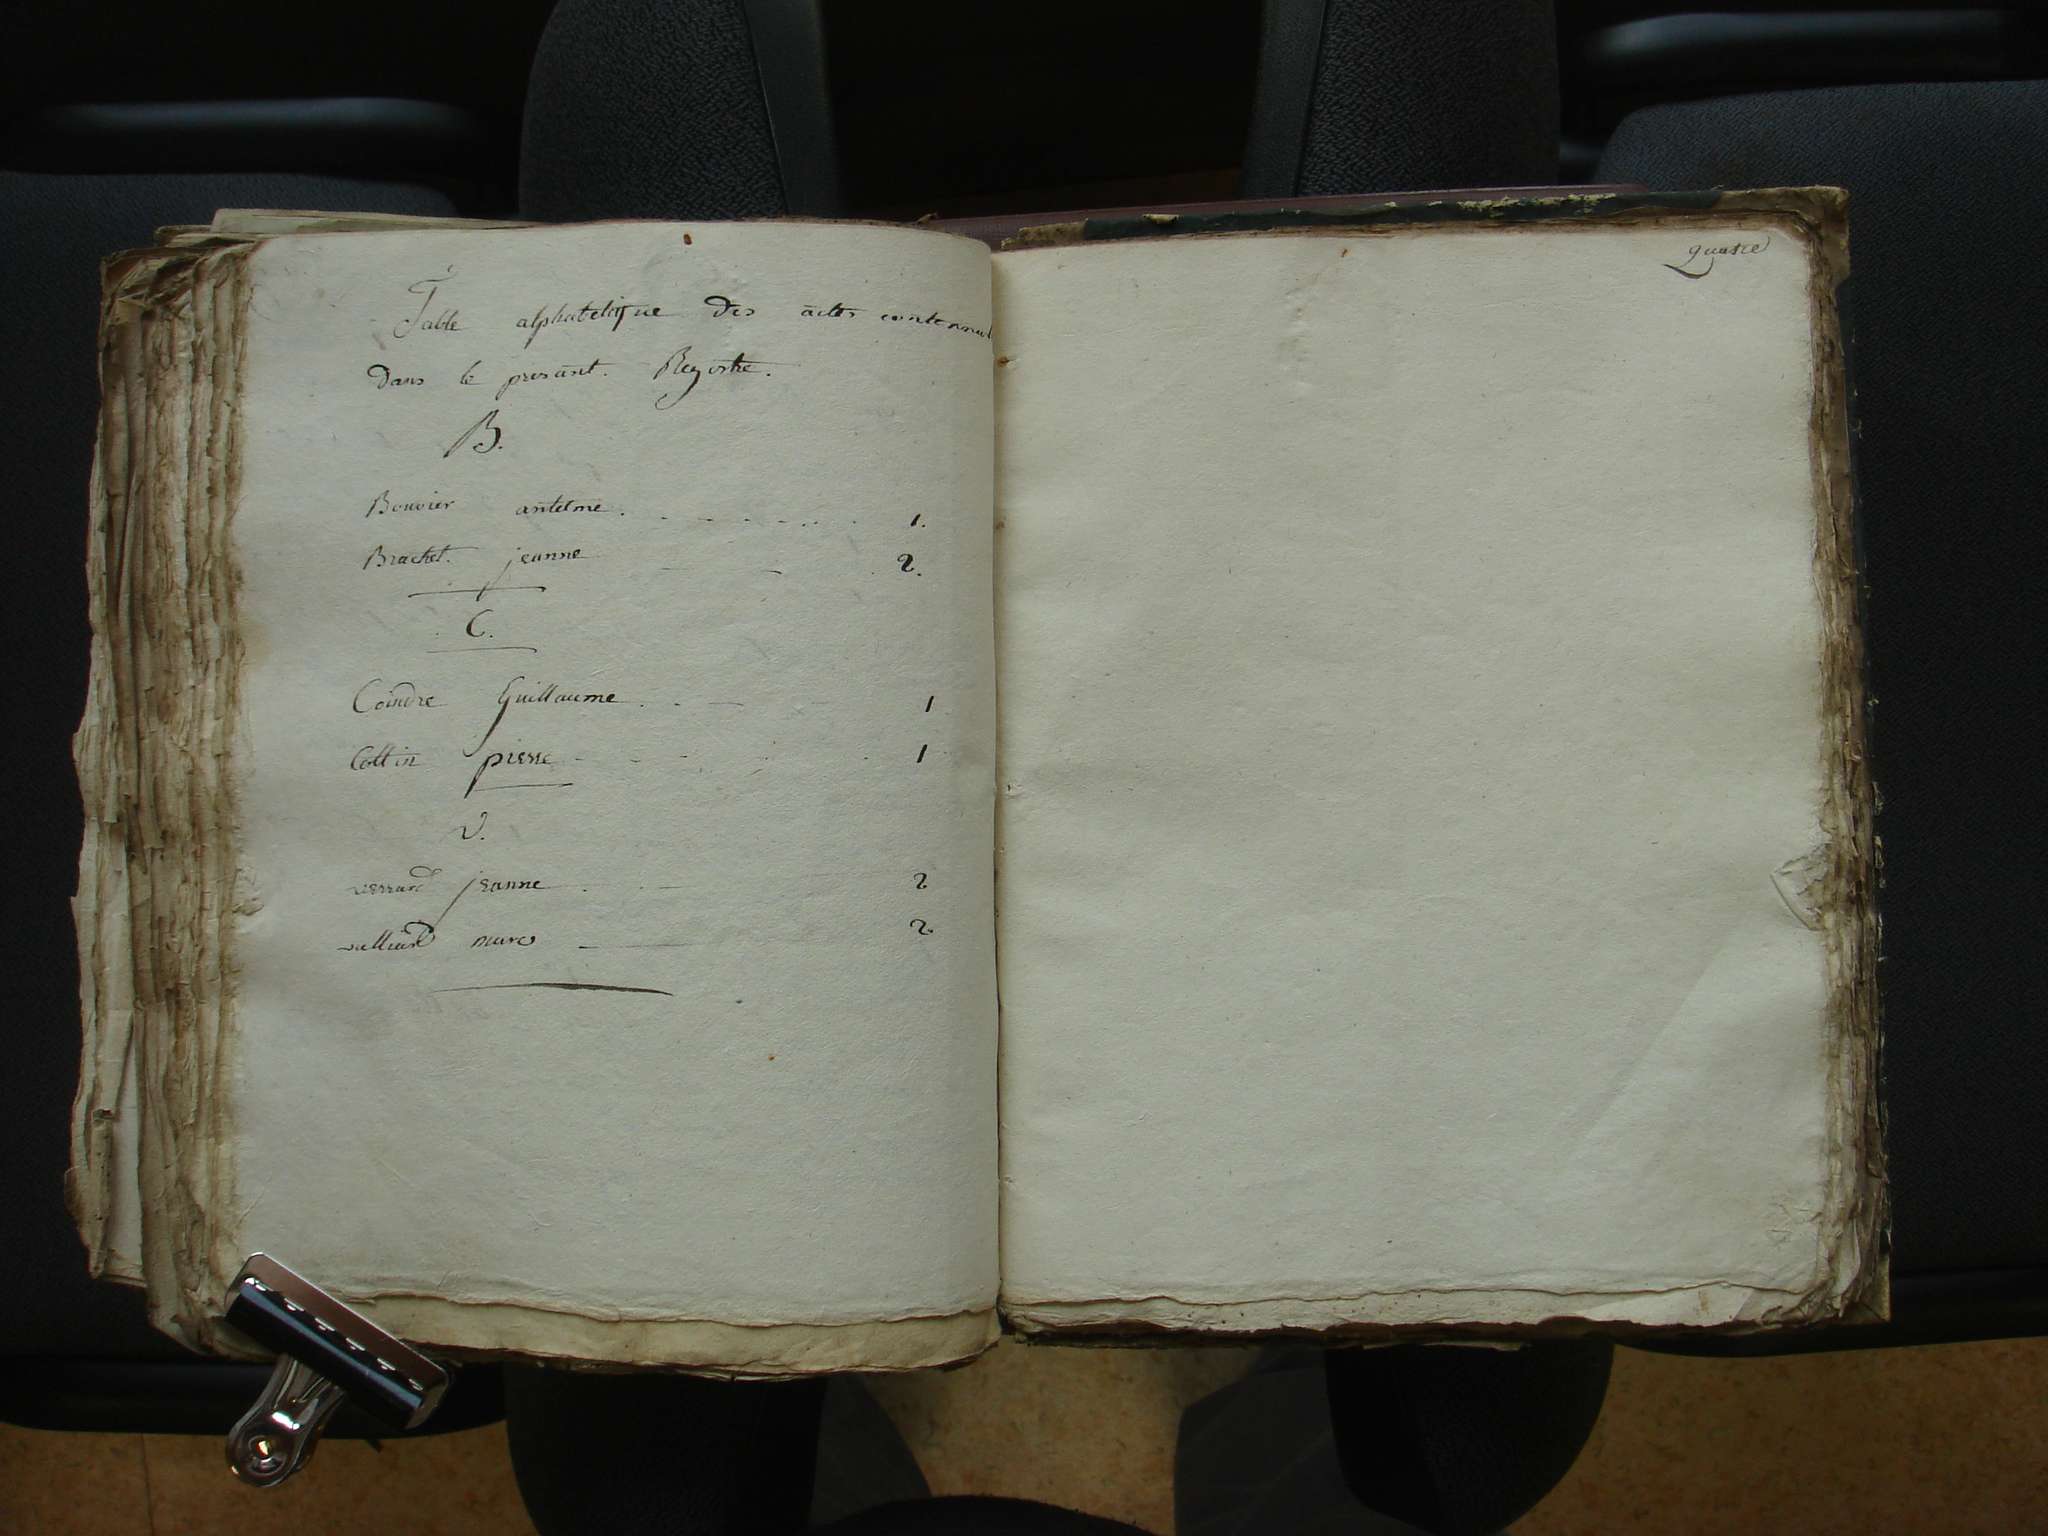 Table alphabetique des actes contennus
dans le presant. Registre.
B.
Bouvier antelme. 1.
Brachet. jeanne 2.
C.
Coindre Guillaume. 1
Collin pierre 1
V.
verrard jeanne 2
vulliard marc 2
quatre